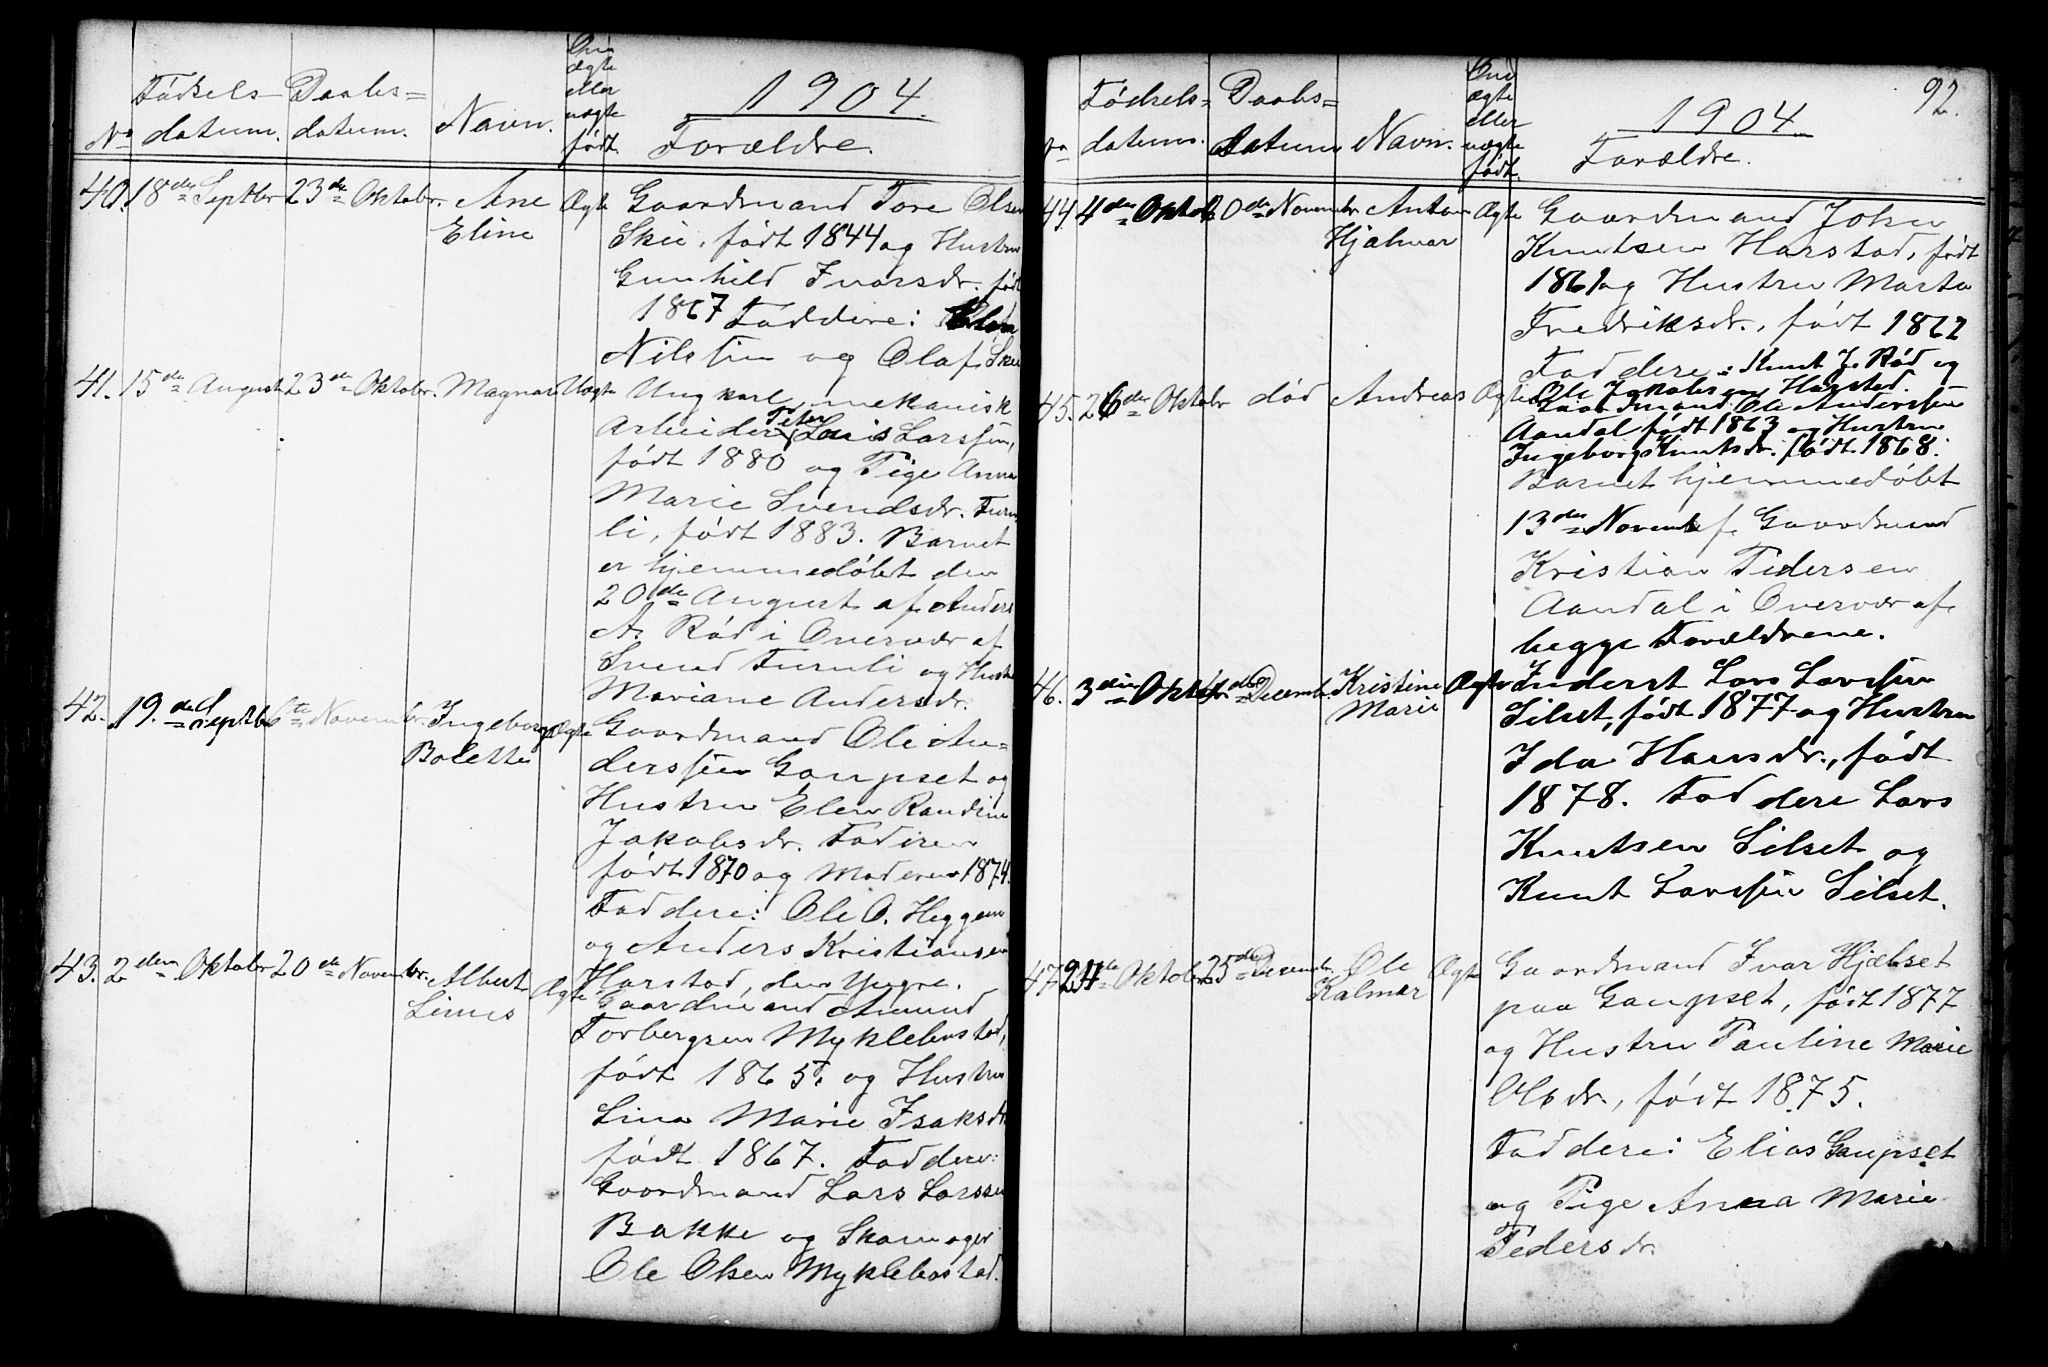 Fødsels- Daabs= Om ægte eller uægte født. 1904.
No datum. datum. Navn. Forældre.
40. 18de Septbr 23de Oktobr. Ane Ægte Gaardmand Tore Olsen
Eline Skei, født 1844 og Hustru
Gunhild Ivarsdr. født
1867 Faddere:
Nilstun og Olaf Skei
41. 15de August 23de Oktobr. Magnar Uægte Ungkarl, mekanisk
Arbeider Peter Laris Larssen,
født 1880 og Pige Anna
Marie Svendsdr. Furu
li, født 1883. Barnet
er hjemmedøbt den
20de August af Anders
A. Rød i Overvær af
Svend Furuli og Hustru
Mariane Andersdr.
42. 19.de Septbr 6te Novembr. Ingeborg Ægte Gaardmand Ole An=
Bolette derssen Gaupset og
Hustru Elen Randine
Jakobsdr. Faderen
født 1870 og Moderen 1874.
Faddere: Ole O. Heggem
og Anders Kristiansen
Harstad, den Yngre.
43. 2den Oktobr 20de Novembr. Albert Ægte Gaardmand Amund
Linus Torbergsen Myklebostad,
født 1865. og Hustru
Lina Marie Isaksdr
født 1867. Faddere:
Gaardmand Lars Larssen
Bakke og Skomager
Ole Olsen Myklebostad.
92.
Fødsels= Daabs= Om ægte eller uægte født. 1904.
No datum. datum Navn. Forældre.
44. 4de Oktobr 20de Novembr. Anton Ægte Gaardmand John
Hjalmar Knutsen Harstad, født
1861 og Hustru Marta
Fredriksdr., født 1862
Faddere: Knut J. Rød og
Ole Jakobsen Harstad.
45. 26de Oktobr død Andreas Ægte Gaardmand Ole Anderssen
Aandal født 1863 og Hustru
Ingeborg Knutsdr. født 1868.
Barnet hjemmedøbt
13de Novemb af Gaardmand
Kristian Pedersen
Aandal i Overvær af
begge Forældrene.
46. 3die Oktobr 4de Decembr. Kristine Ægte Inderst Lars Larssen
Marie Silset, født 1877 og Hustru
Ida Hansdr., født
1878. Faddere Lars
Knutsen Silset og
Knut Larssen Silset.
47. 24de Oktobr. 25de Decembr. Ole Ægte Gaardmand Ivar Hjelset
Kalmar paa Gaupset, født 1877
og Hustru Pauline Marie
Olsdr., født 1875.
Faddere: Elias Gaupset
og Pige Anna Marie
Pedersdr.